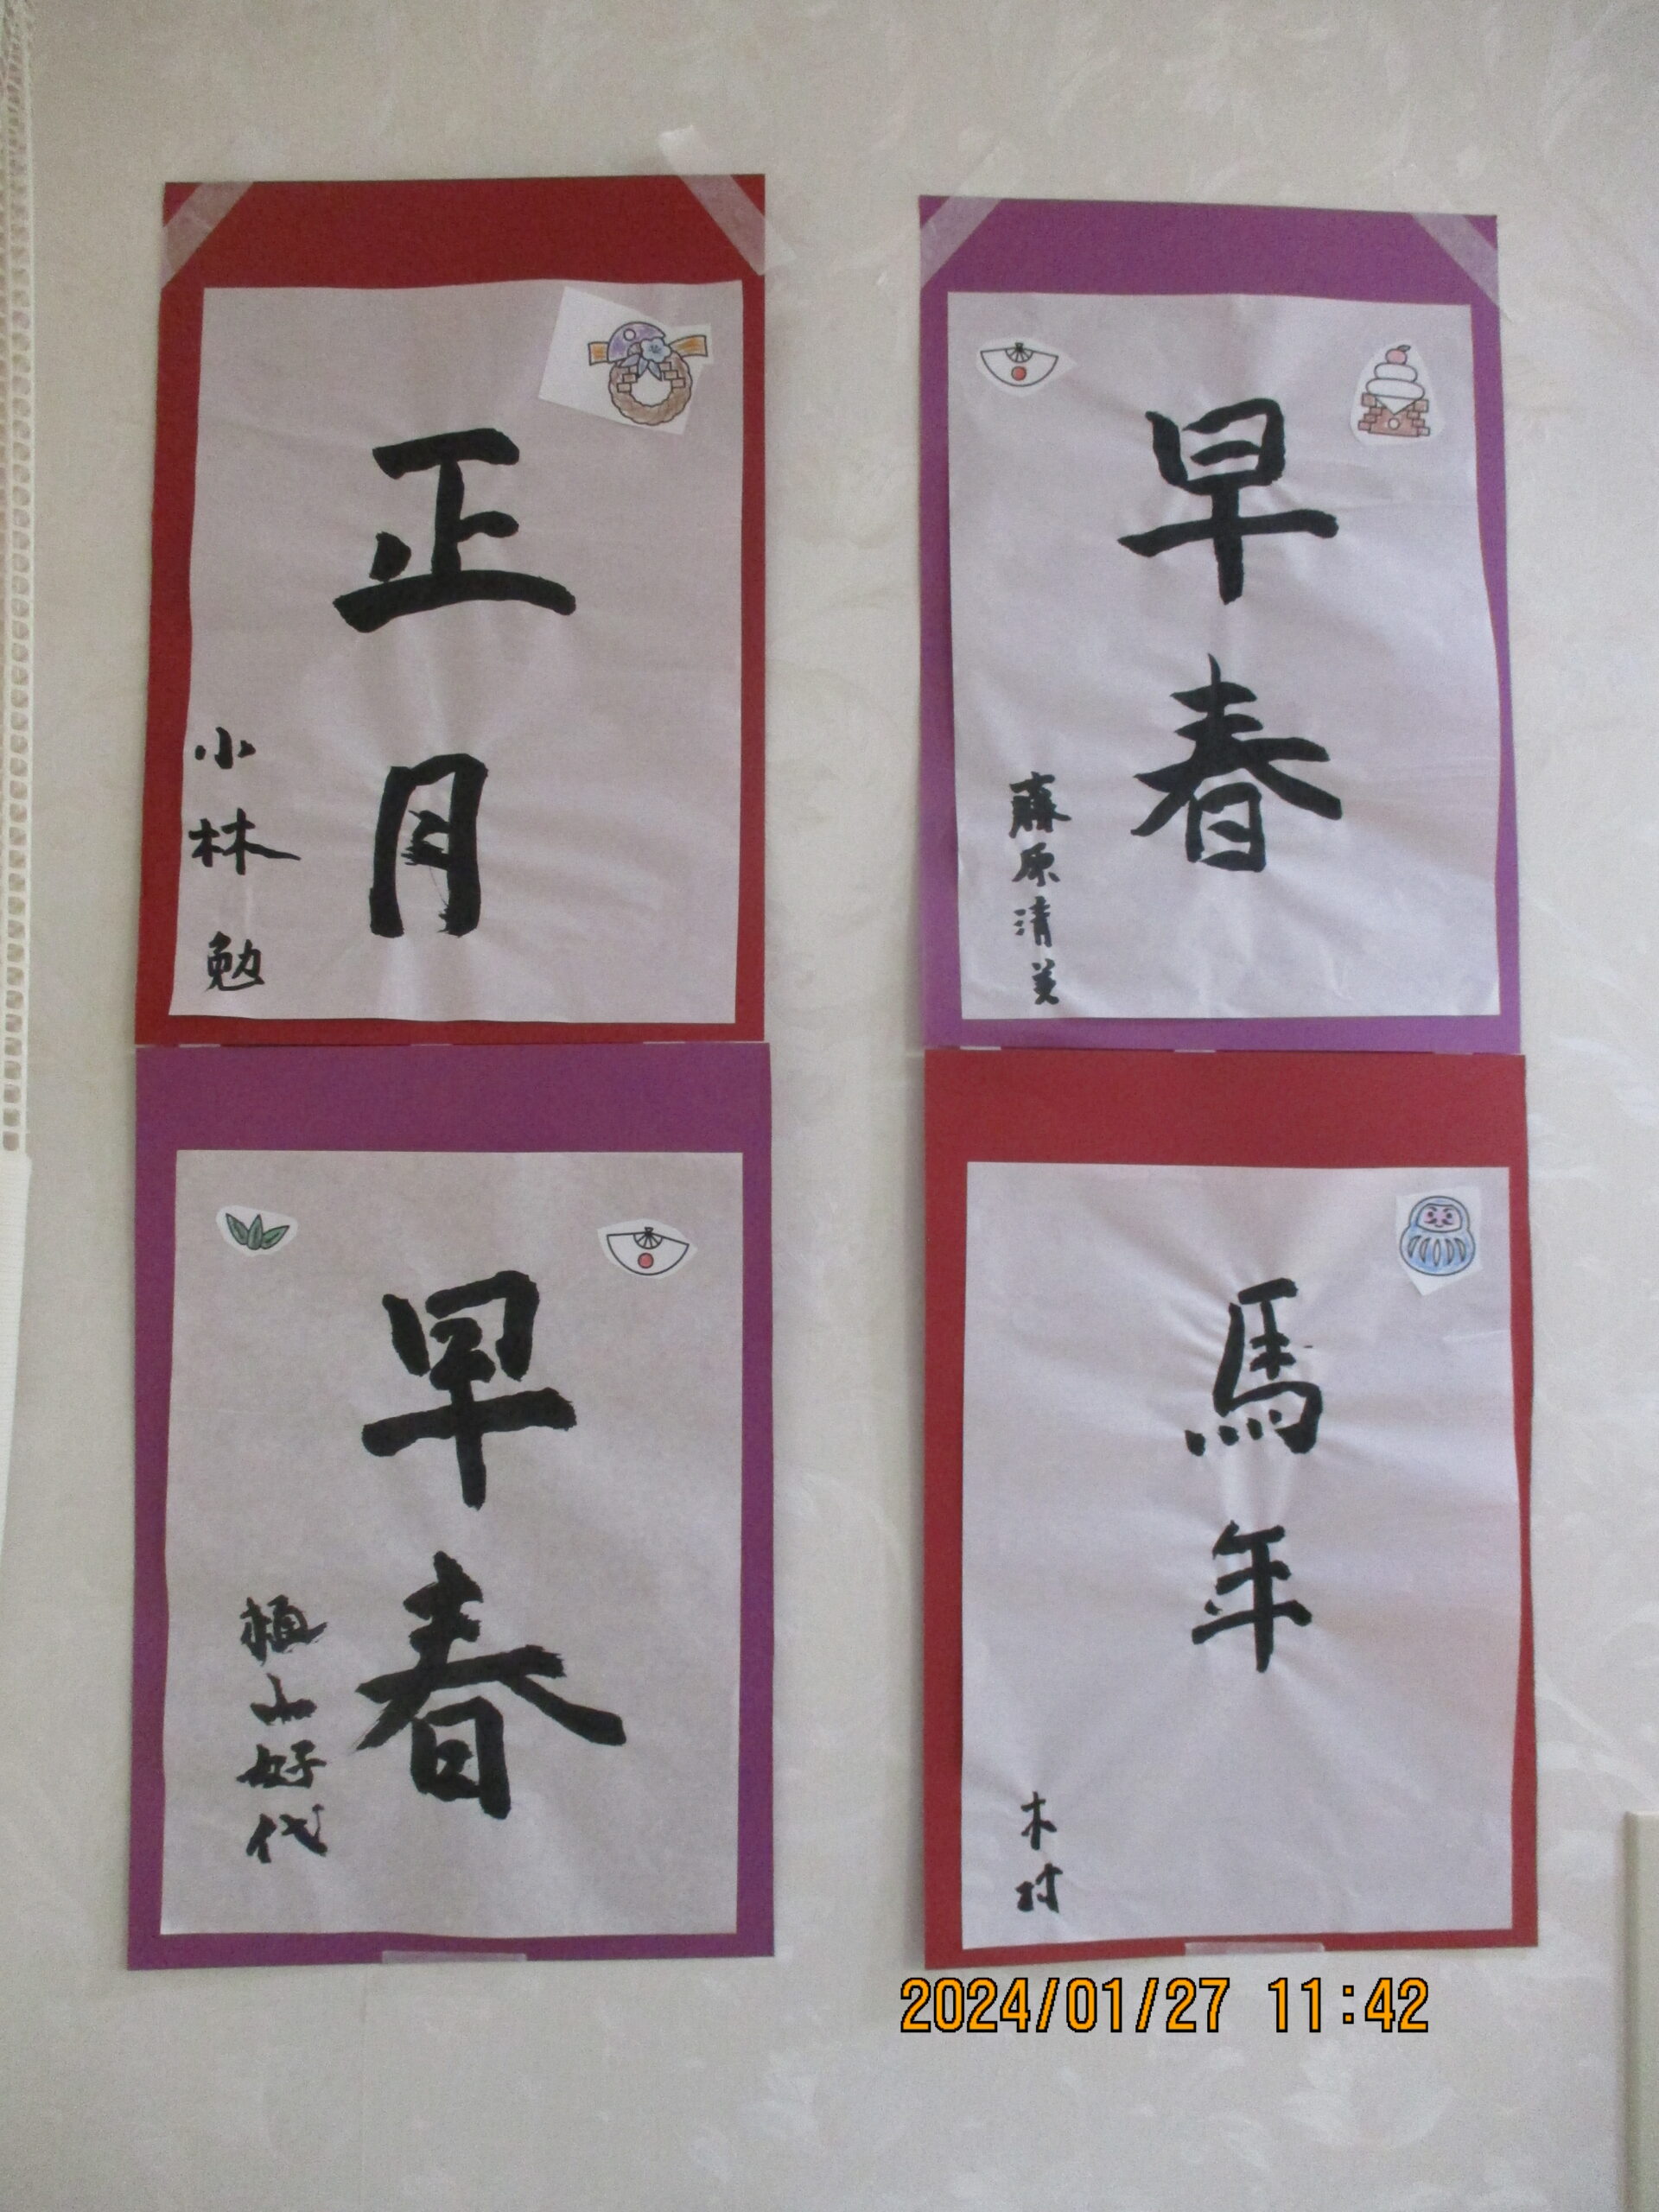 正月
小林 勉
早春
藤原清美
早春
植山好代
馬年
木村
2024/01/27 11:42